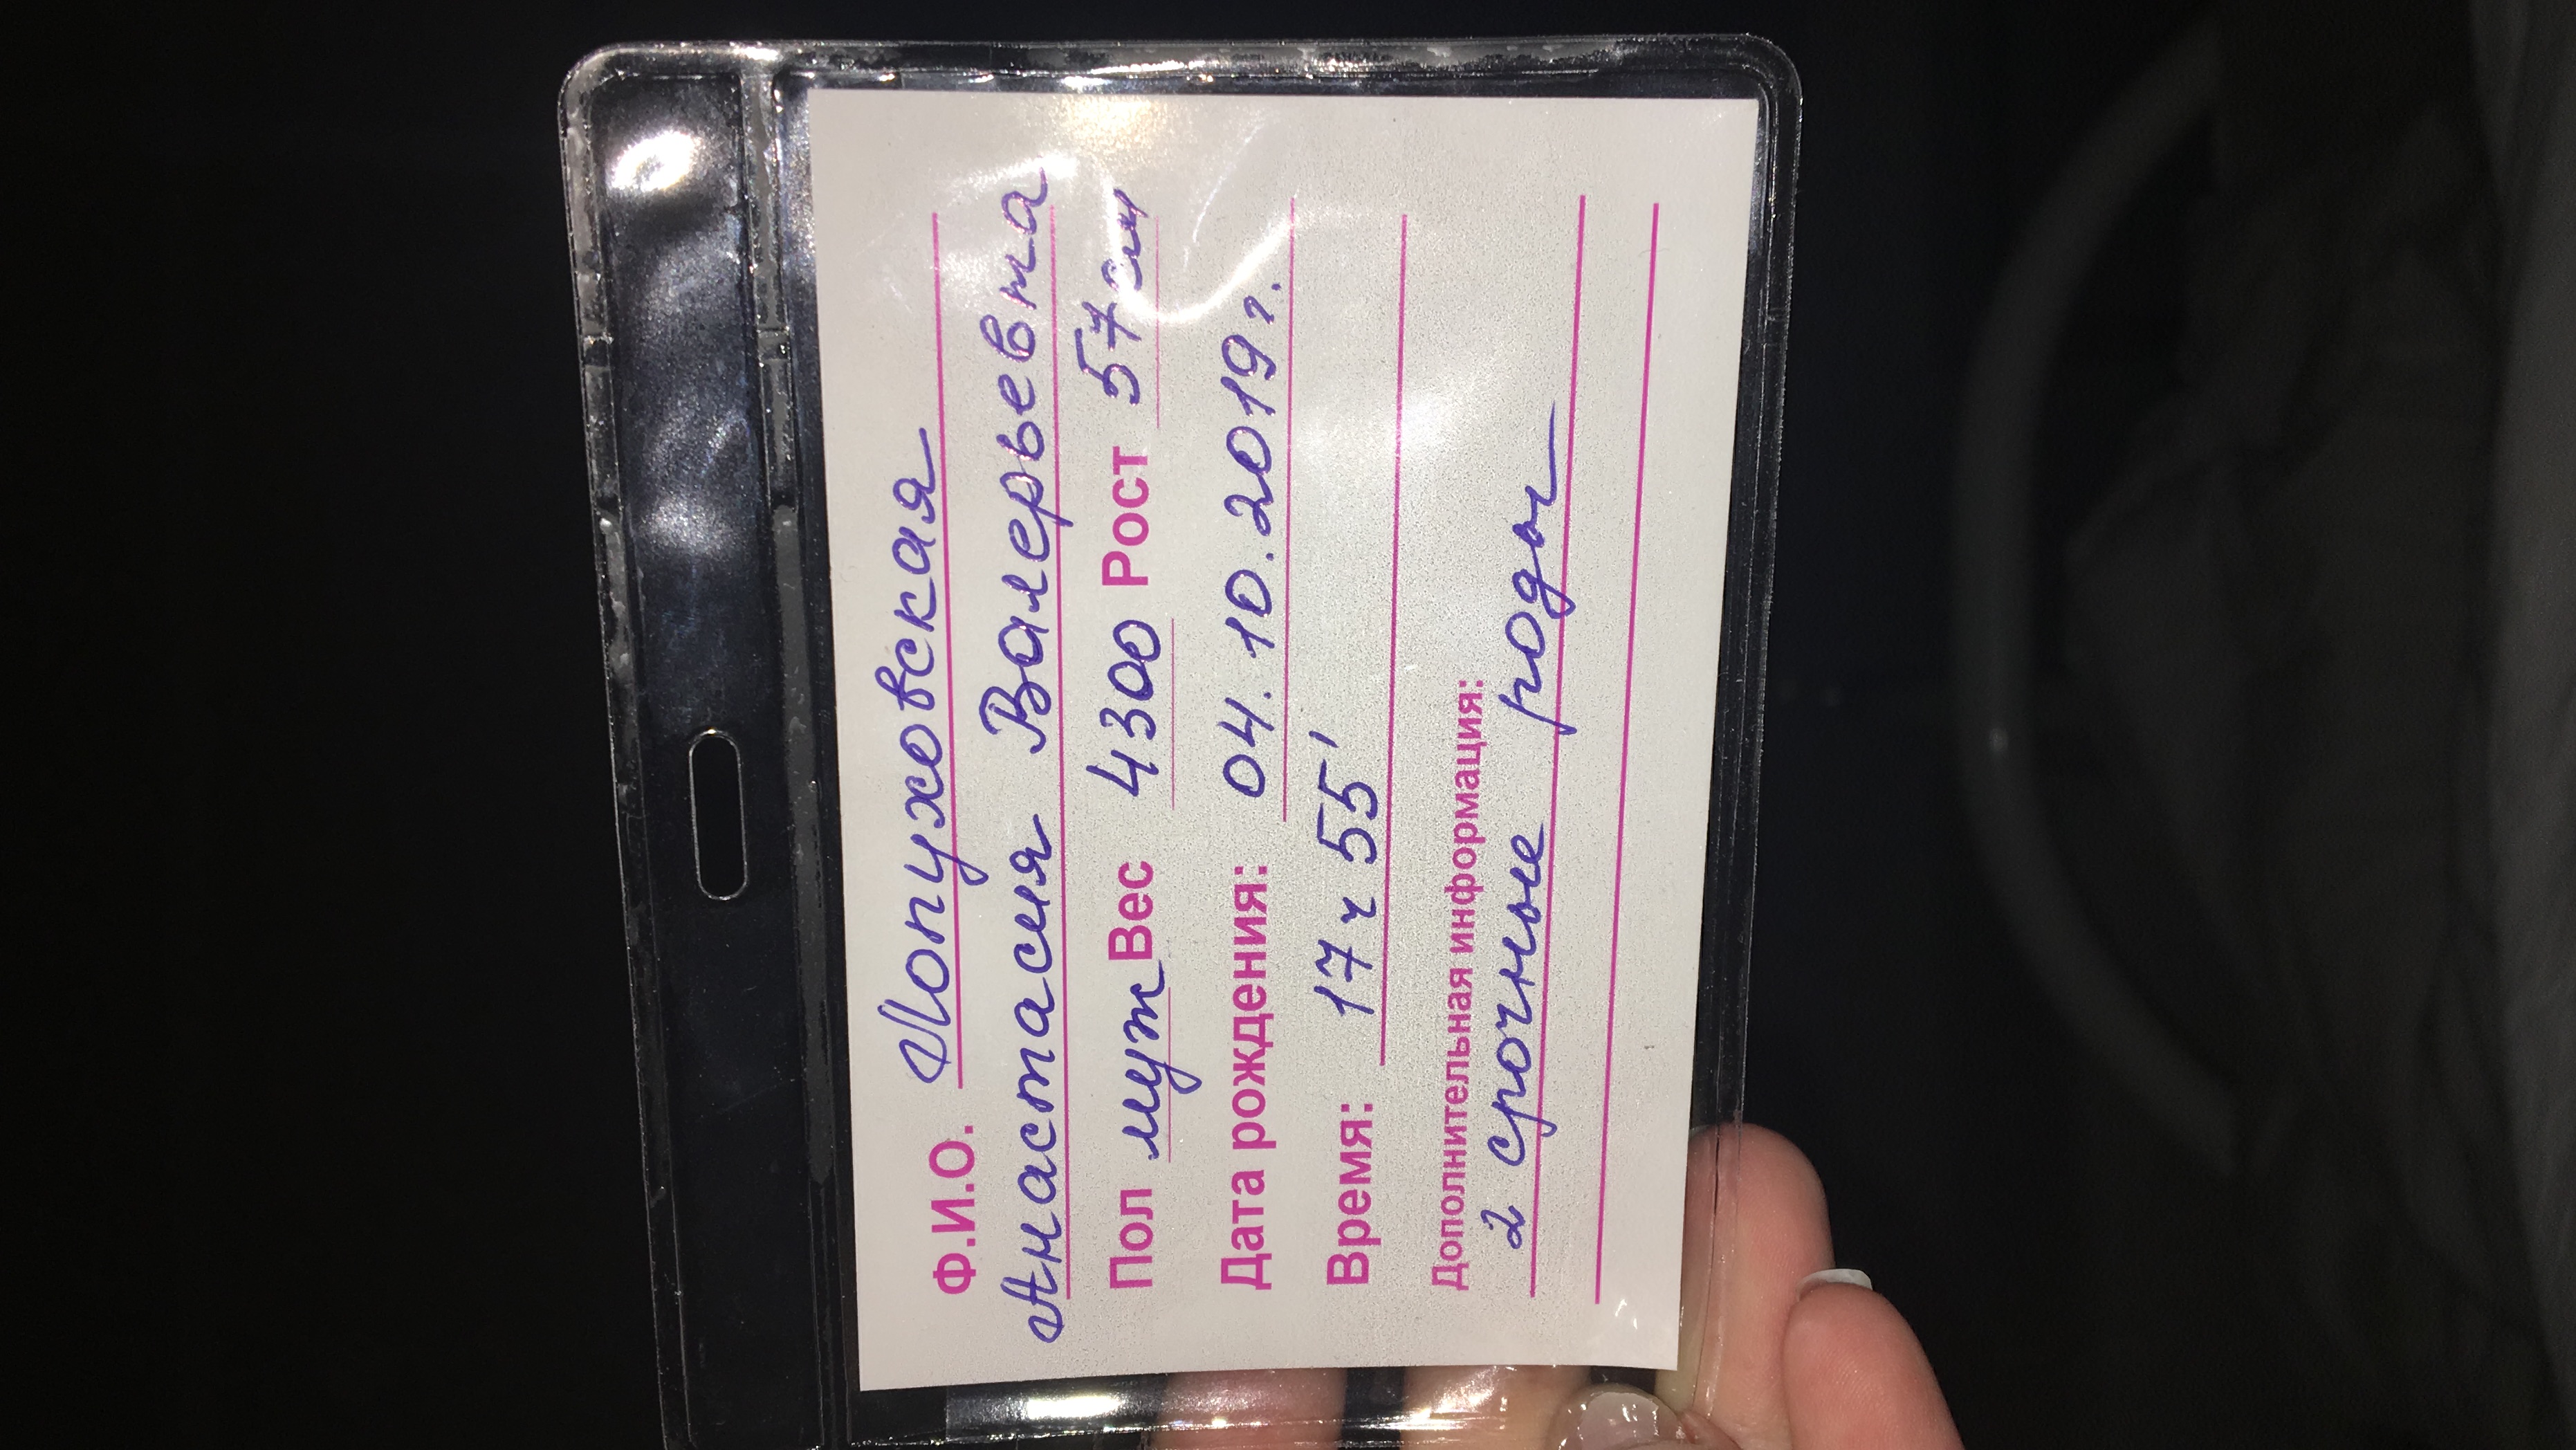 Ф.И.О. Лопуховская
Анастасия Валерьевна
Пол муж Вес 4300 Рост 57 см
Дата рождения: 04.10.2019 г.
Время: 17 ч 55'
Дополнительная информация:
2 срочные роды